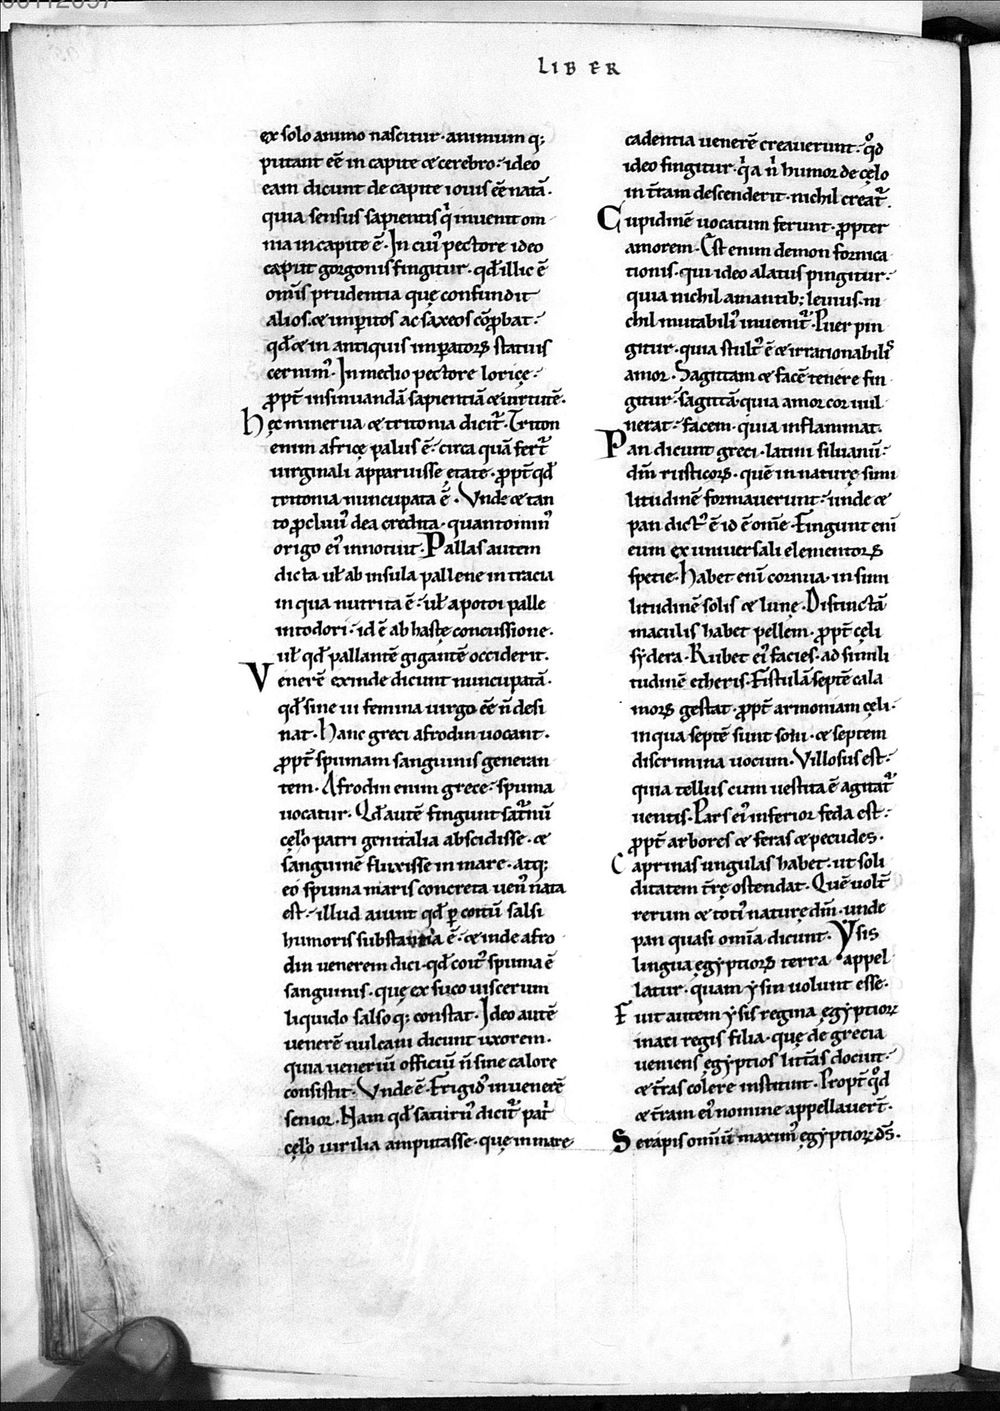 LIBER
ex solo animo nascitur · animum q;
putant eē in capite & cerebro · ideo
eam dicunt de capite iouis eē natā ·
quia sensus sapientis q̇ inuenit om
nia in capite ē · In cui᾿ pectore ideo
caput gorgonis fingitur · qđ illic ē
om̄is prudentia quę confundit
alios · & imperitos ac saxeos cōprobat ·
qđ & in antiquis imperatorꝝ statuis
cernim᾿ · In medio pectore loricę ·
ꝓpt̄ insinuandā sapientiā & uirtutē ·
Hęc minerua & tritonia dicit᷑ · Triton
enim africę palus ē · circa quā fert᷑
uirginali apparuisse ętate · ꝓpt̄ qđ
tritonia nuncupata ē · Vnde & tan
to ꝓcliui᾿ dea credita · quanto min᾿
origo ei᾿ innotuit · Pallas autem
dicta uł ab insula pallene in tracia
in qua nutrita ē · uł apo toi palle
in todori · id ē ab hastę concussione ·
uł qđ pallantē gigantē occiderit ·
Venerē exinde dicunt nuncupatā ·
qđ sine ui femina uirgo eē n̄ desi
nat · Hanc greci afrodin uocant ·
ꝓpt̄ spumam sanguinis generan
tem · Afrodin enim grece · spuma
uocatur · Qđ autē fingunt sat᷑nū
cęlo patri genitalia abscidisse · &
sanguinē fluxisse in mare · atq;
eo spuma maris concreta uen᾿ nata
est · illud aiunt qđ ꝑ coitū salsi
humoris substantia ē · & inde afro
din uenerem dici · qđ coit᾿ spuma ē
sanguinis · quę ex suco uiscerum
liquido salsoq; constat · Ideo autē
uenerē uulcani dicunt uxorem ·
quia ueneriū officiū n̄ sine calore
consistit · Vnde ē · Frigid᾿ in uenerē
senior · Nam qđ saturn᾿ dicit᷑ pat᷑
cęlo uirilia amputasse · quę in mare
cadentia uenerē creauerunt · qđ
ideo fingitur · q̇a n̄ humor de cęlo
in t᷑ram descenderit · nichil creat᷑ ·
Cupidinē uocatum ferunt · ꝓpter
amorem · Est enim demon fornica
tionis · qui ideo alatus pingitur ·
quia nichil amantib; leuius · ni
chil mutabili᾿ inuenit᷑ · Puer pin
gitur · quia stult᾿ ē & irrationabilis
amor · Sagittam & facē tenere fin
gitur · sagittā · quia amor cor uul
nerat · facem · quia inflammat ·
Pan dicunt greci · latini siluanū ·
dm̄ rusticorꝝ · quē in naturę simi
litudinē formauerunt · unde &
pan dict᾿ ē id ē om̄e · Fingunt enī
eum ex uniuersali elementorꝝ
specie · Habet enī cornua · in simi
litudinē solis & lunę · Distinctā
maculis habet pellem · ꝓpt̄ cęli
sẏdera · Rubet ei᾿ facies · ad simili
tudinē etheris · Fistulā septē cala
morꝝ gestat · ꝓpt̄ armoniam cęli ·
in qua septē sunt soni · & septem
discrimina uocum · Villosus est ·
quia tellus cum uestita ē agitat᷑
uentis · Pars ei᾿ inferior feda est ·
ꝓpt̄ arbores & feras & pecudes ·
Caprinas ungulas habet · ut soli
ditatem t᷑rę ostendat · Quē uolt̄
rerum & toti᾿ naturę dm̄ · unde
pan quasi omīa dicunt · Ẏsis
lingua ęgẏptiorꝝ terra appel
latur · quam ẏsin uolunt esse ·
Fuit autem ẏsis regina ęgẏptiorꝝ
inaci regis filia · quę de grecia
ueniens ęgẏptios litt᷑as docuit ·
& t᷑ras colere instituit · Propt̄ qđ
& t᷑ram ei᾿ nomine appellauer̄t ·
Serapis omiū maxim᾿ ęgẏptiorꝝ d̄s ·